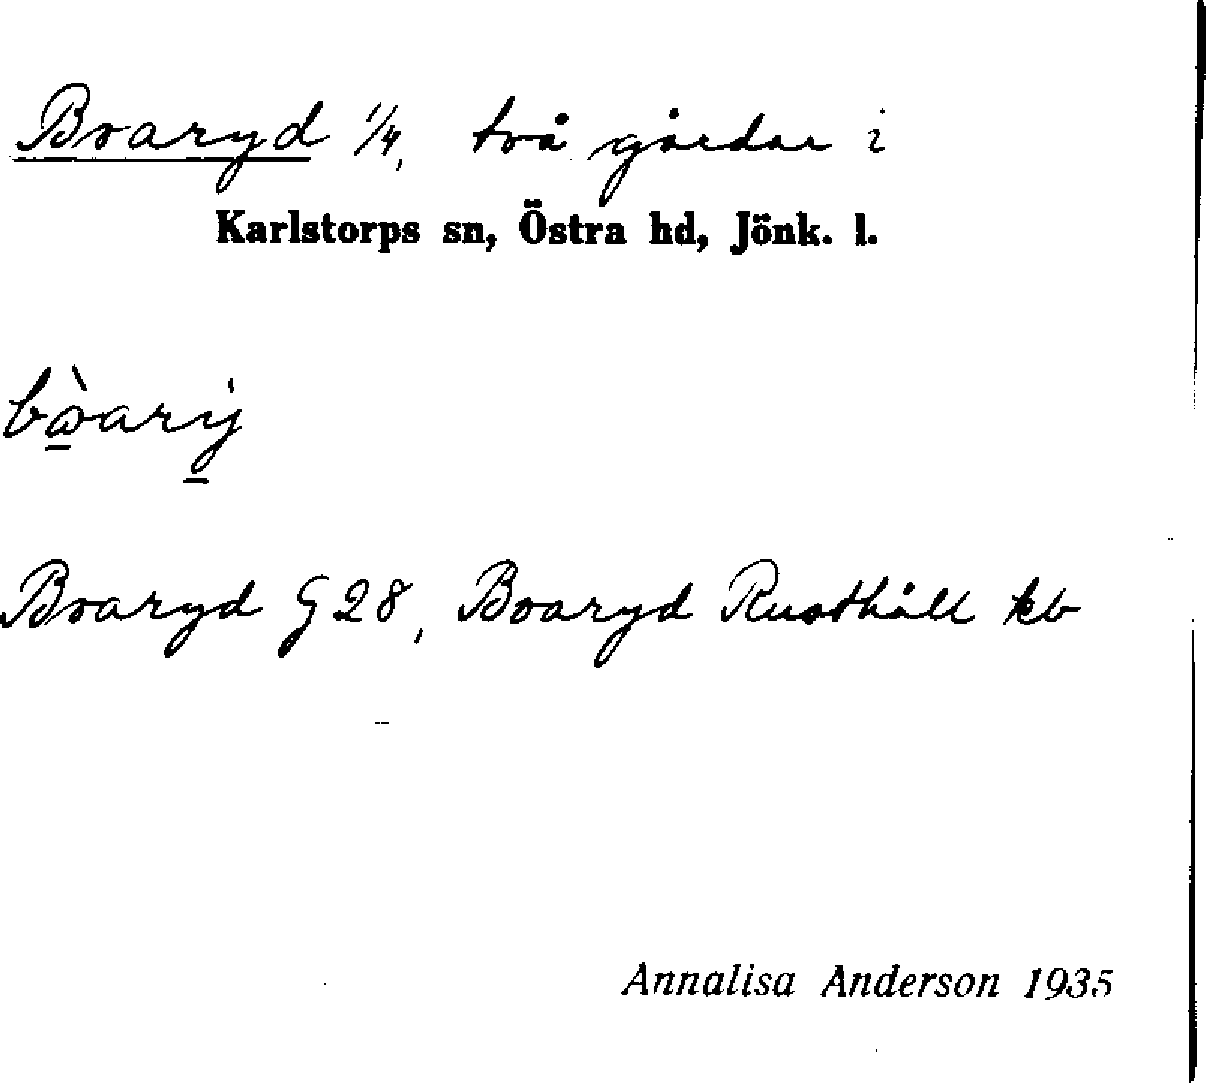 Boaryd 1/4, två gårdar i
Karlstorps sn, Östra hd, Jönk. l.
Boaryd G 28, Boaryd Rusthåll kb
Annalisa Anderson 1935